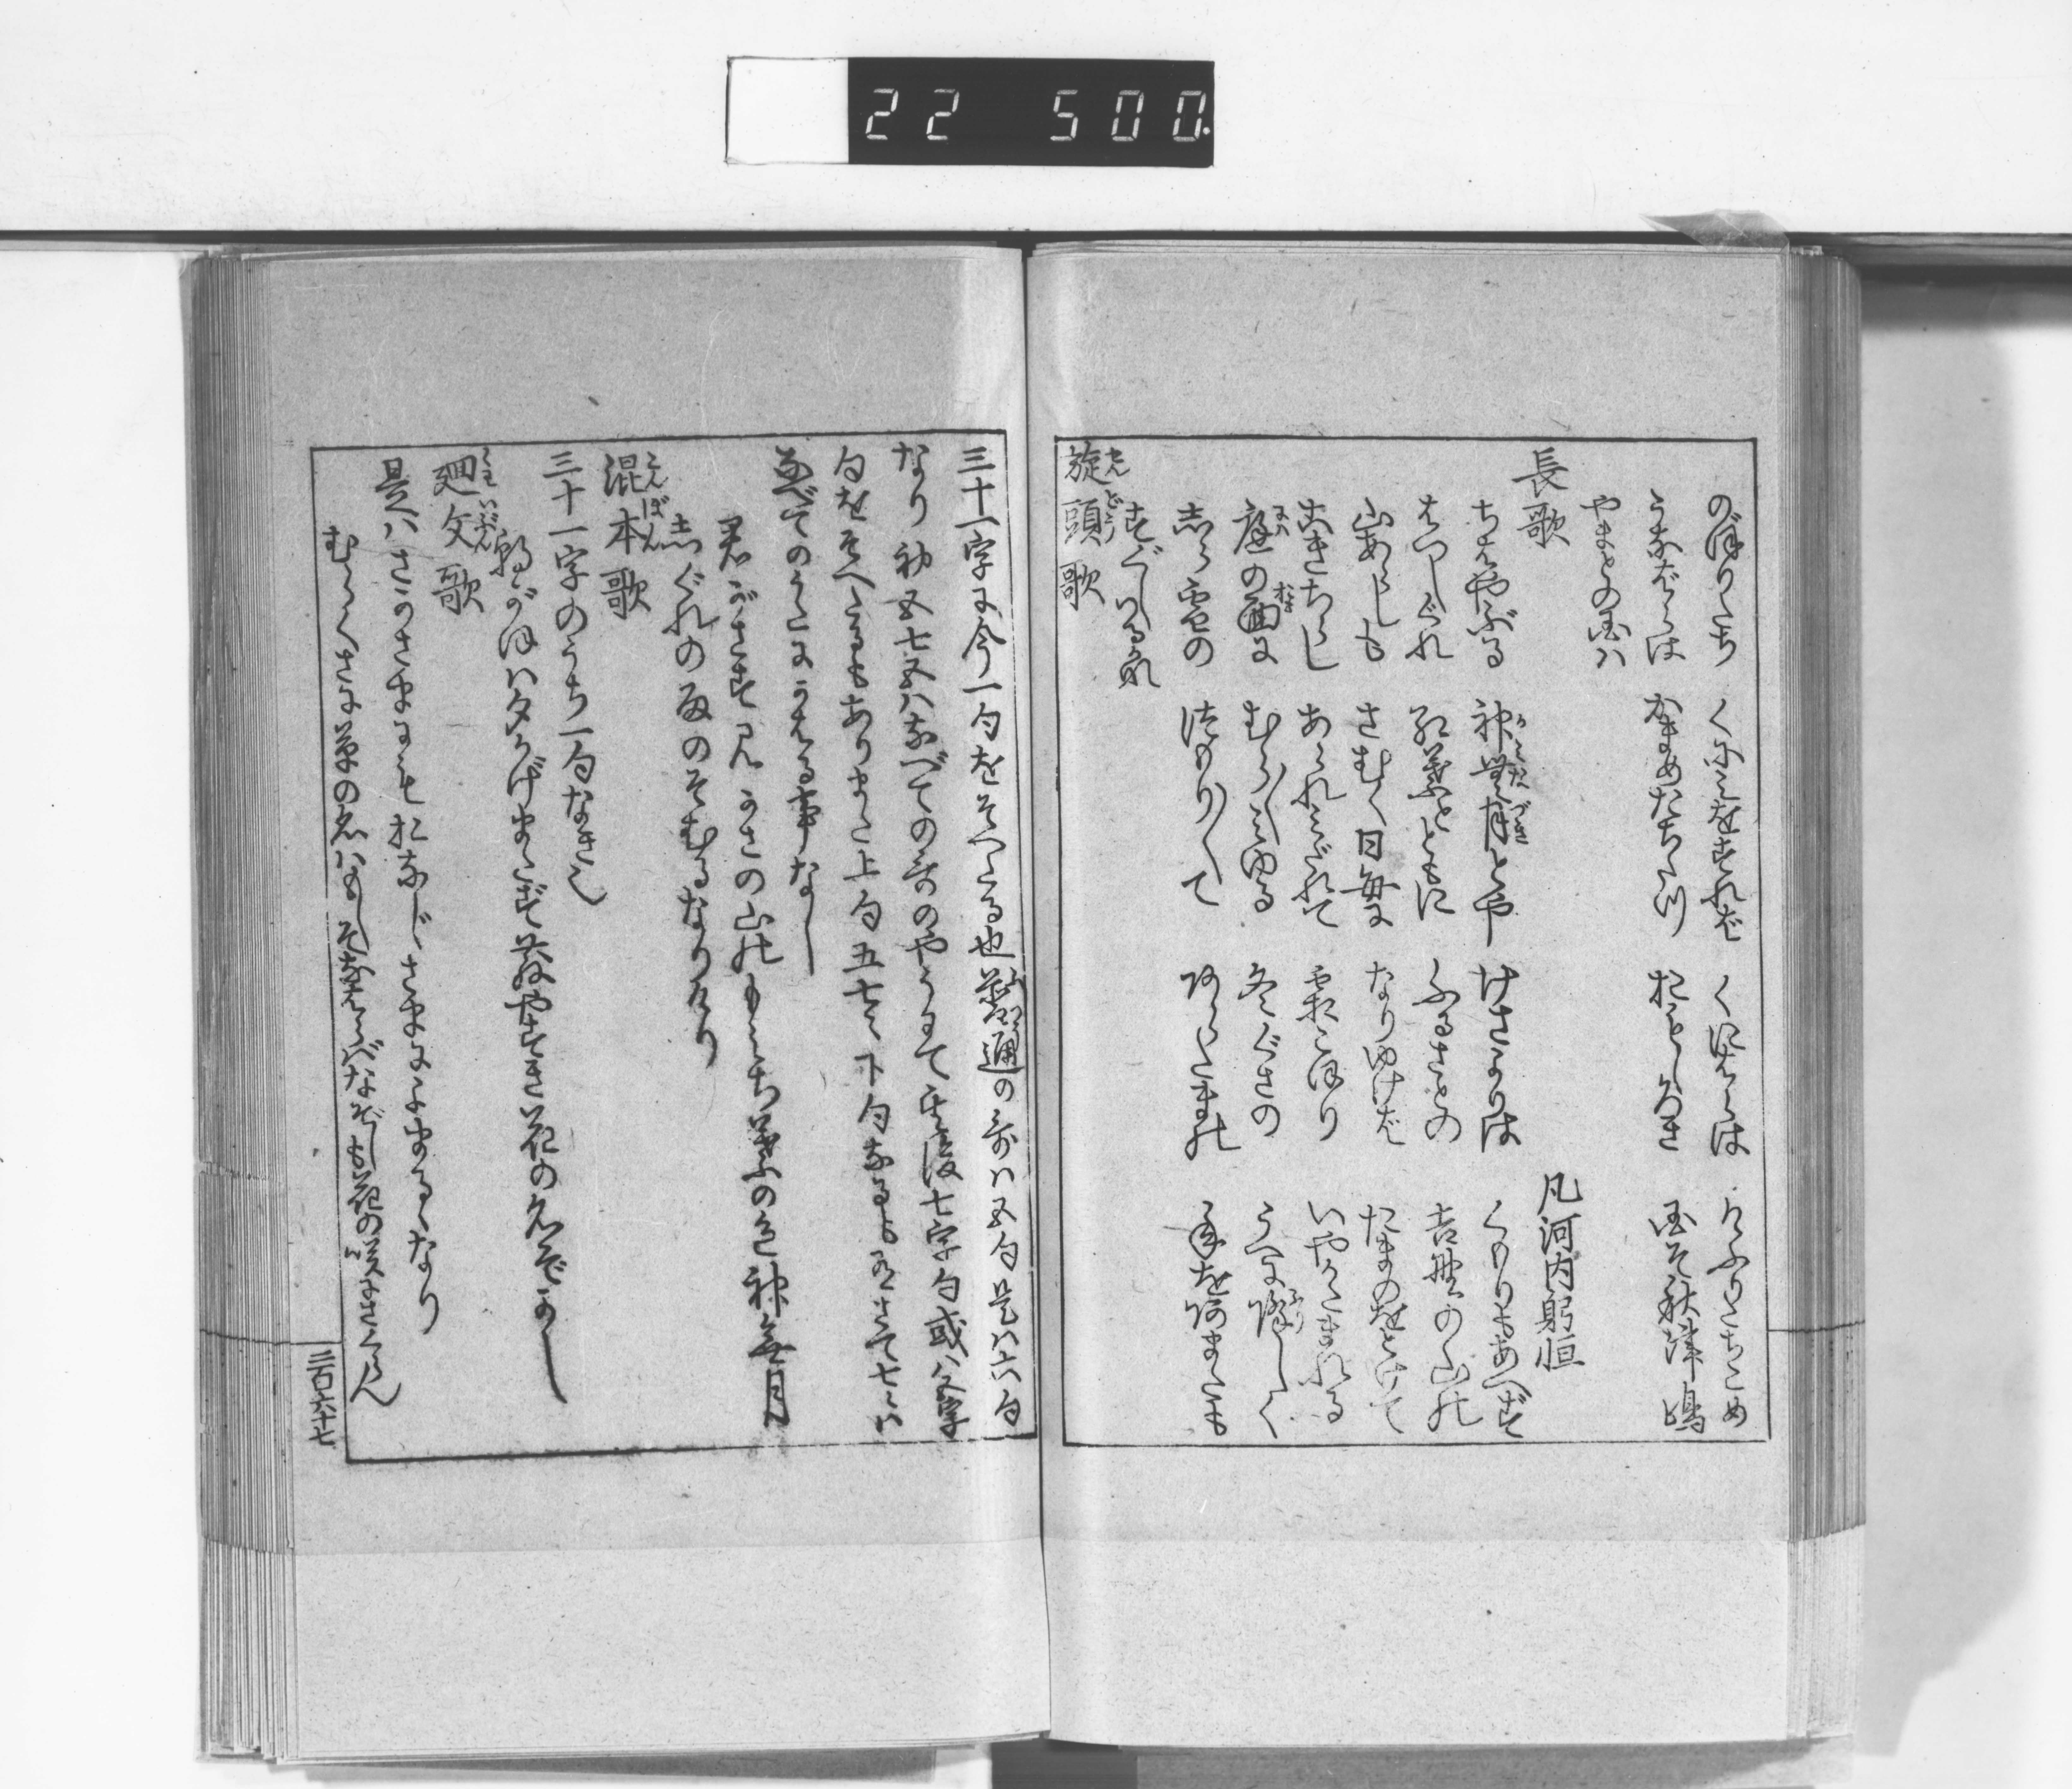 22 500.
のぼりたち くにみをすれば くにはらは けふりたちこめ
うなばらは かまめたちたつ おもしろき 国そ秋津嶋
やまとの国ハ
長歌 凡河内躬恒
ちはやぶる 神無月とや けさよりは くもりもあへず
はつしぐれ 紅葉とともに ふるさとの 吉野の山の
山あらしも さむく日毎に なりゆけば たまのをとけて
こきちらし あられみだれて 霜こほり いやかたまれる
庭の面に むら〳〵みゆる 冬ぐさの うへに降しく
しら雪の つもり〳〵て あらたまの 年をあまたも
すぐしつる哉
旋頭歌
三十一字に今一句をそへたる也 普通の哥ハ五句是ハ六句
なり 初五七五ハなべての哥のやうにて 其後七字句或ハ五字
句をそへたるもあり また上句五七々下句なるも
なべてのうたにかはる事なし
君がさす みかさの山の もみぢ葉の色 神無月
しぐれの雨の そむるなりけり
混本歌
三十一字のうち一句なき也
朝がほハ夕かげまたず散やすき花の名ぞかし
廻文歌
是ハさかさまによむもおなじさまによまるゝなり
むら〳〵さに草の名ハもしそなはらばなぞしも花の咲にさくらん
三百六十七